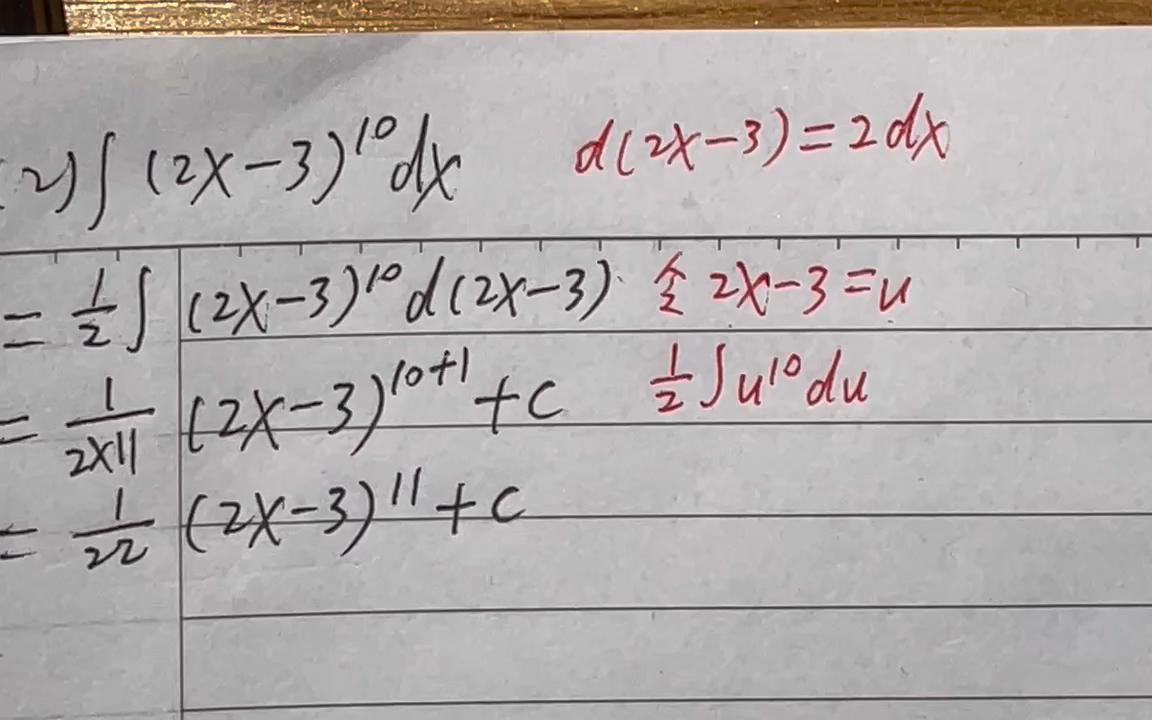 (2) ∫ (2x-3)^10 dx   d(2x-3)=2dx
= 1/2 ∫ (2x-3)^10 d(2x-3)   令 2x-3=u
= 1/(2×11) (2x-3)^(10+1) +c   1/2 ∫ u^10 du
= 1/22 (2x-3)^11 +c